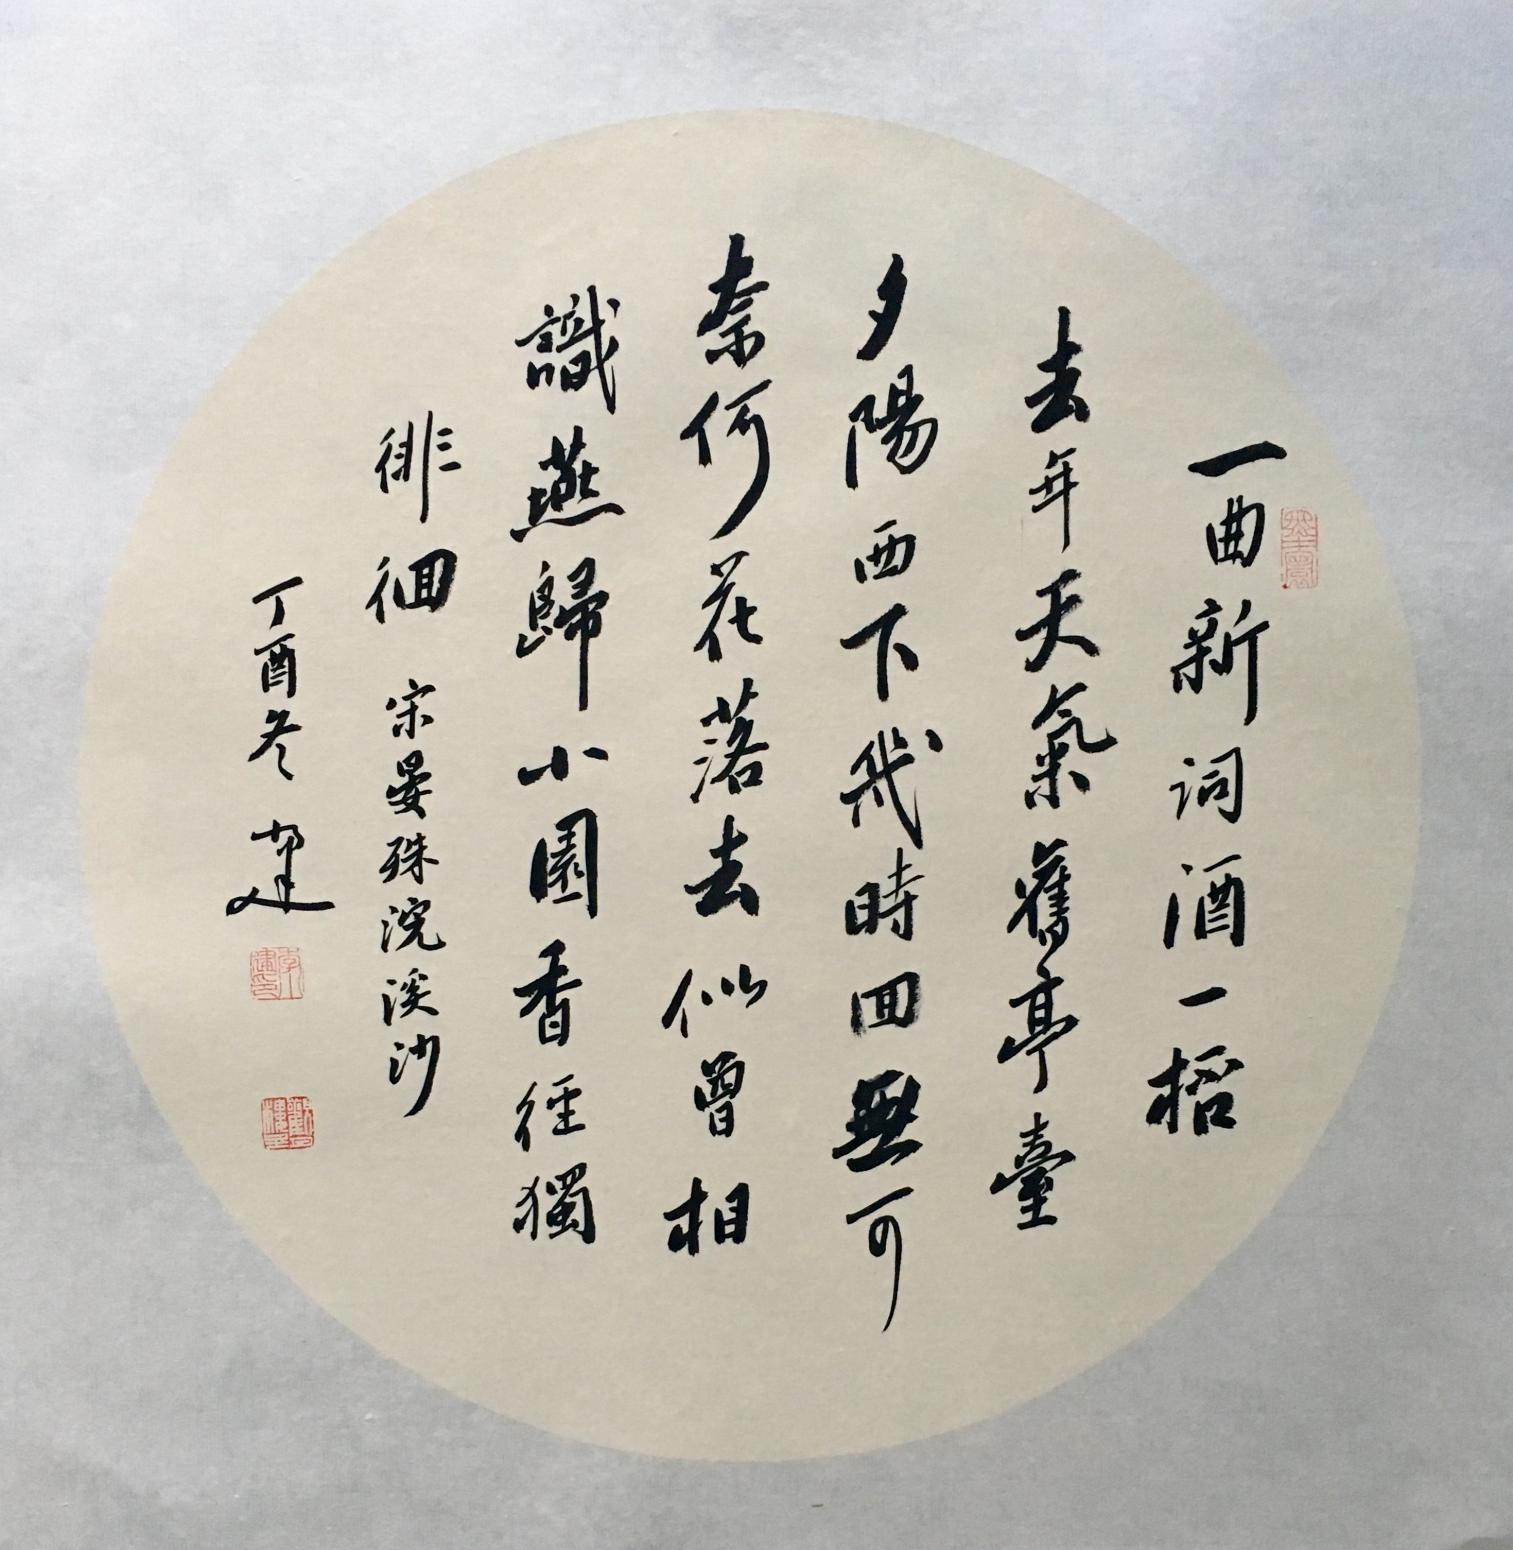 一曲新詞酒一
去年天氣舊亭臺
夕陽西下幾時回無可
奈何花落去似曾相
識燕歸小園香徑獨
徘徊 宋晏殊浣溪沙
丁酉冬 建